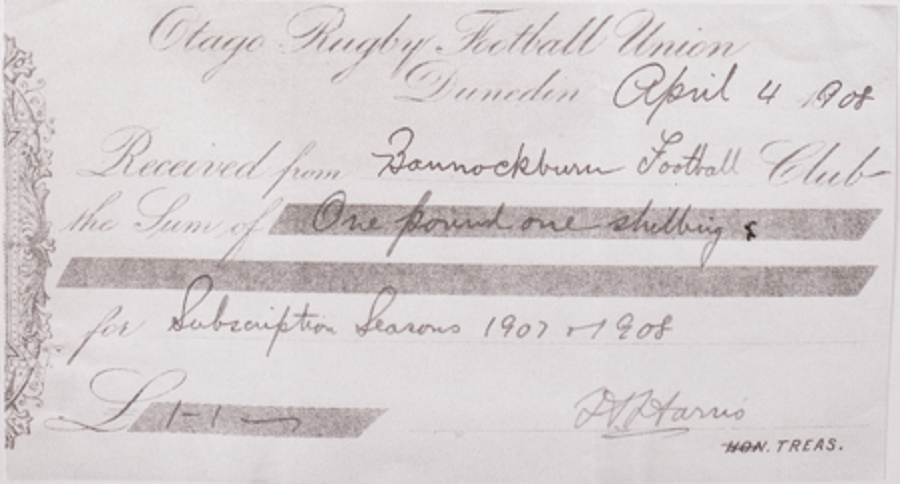 Otago Rugby Football Union
Dunedin April 4 1908
Received from Bannockburn Football Club
the Sum of One pound one shilling
for Subscription Seasons 1907 1908
£ 1-1-
Harris
HON. TREAS.